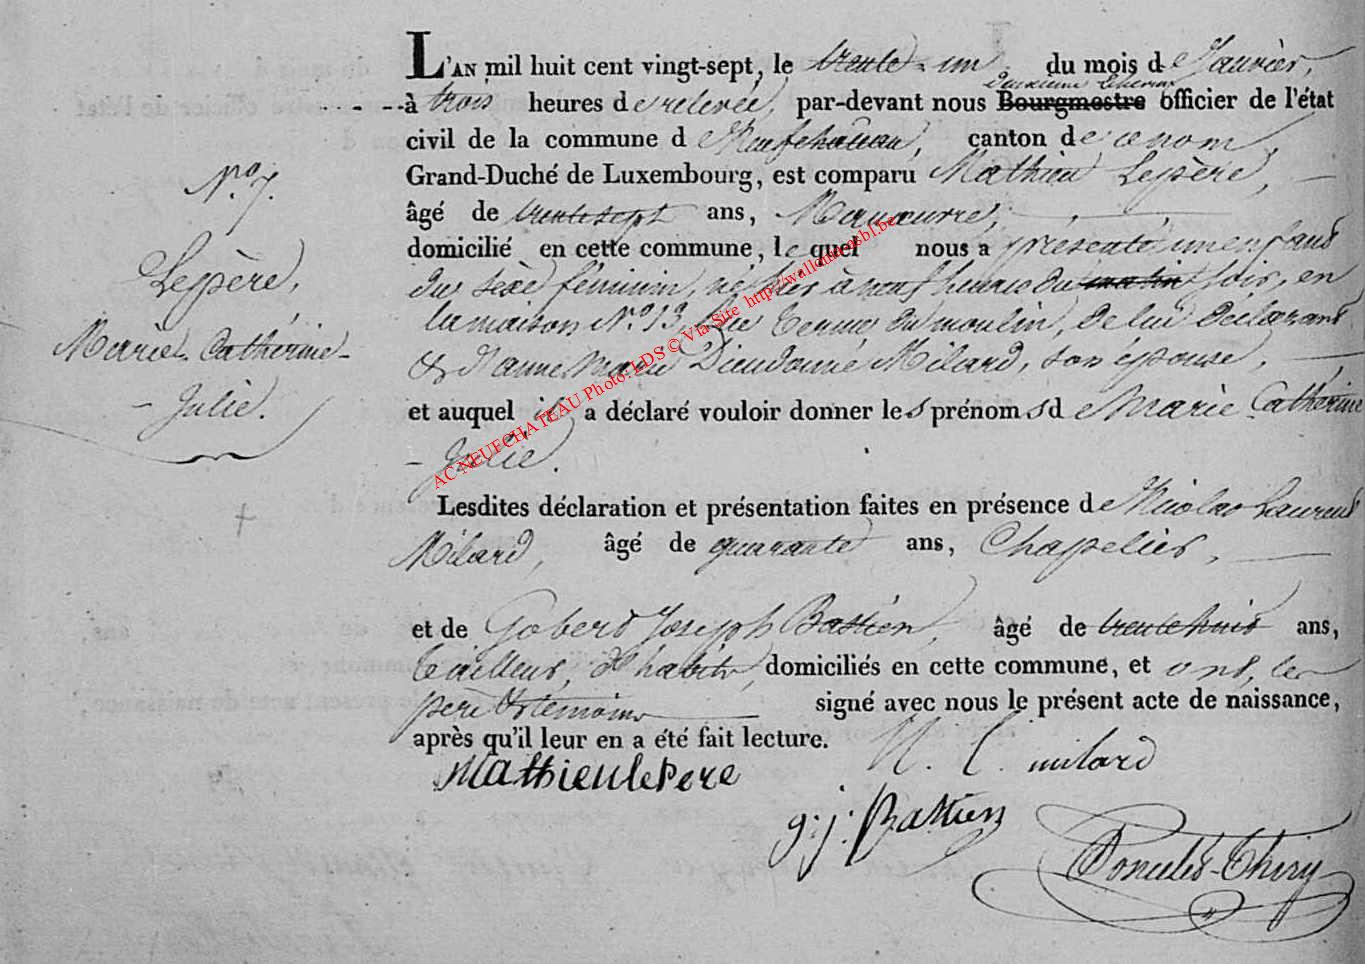 L'AN mil huit cent vingt-sept, le trente-un du mois de Janvier,
Deuxième Echevin
à trois heures de relevée, par-devant nous Bourgmestre officier de l'état
civil de la commune de Neufchateau, canton de ce nom,
Grand-Duché de Luxembourg, est comparu Mathieu Lepère,
âgé de trente sept ans, Manœuvre,
domicilié en cette commune, lequel nous a présenté un enfant
du sexe féminin, né hier à neuf heures du matin soir, en
la maison N.º 13, Rue du moulin, de lui déclarant
& d'anne marie Dieudonné Milard, son épouse,
et auquel il a déclaré vouloir donner les prénoms de Marie Catherine
- Julie.
Lesdites déclaration et présentation faites en présence de Nicolas Laurent
Milard, âgé de quarante ans, Chapelier,
et de Gobert Joseph Bastien, âgé de trente huit ans,
tailleur, d'habits, domiciliés en cette commune, et ont, les
père & témoins signé avec nous le présent acte de naissance,
après qu'il leur en a été fait lecture.
Mathieu lepere
N. L. milard
g: j: Bastien
Poncelet-Thiry
N.º 7.
Lepère,
Marie Catherine
- Julie.
AC NEUFCHATEAU Photo: LDS © Via Site http://wallonia.asbl.be